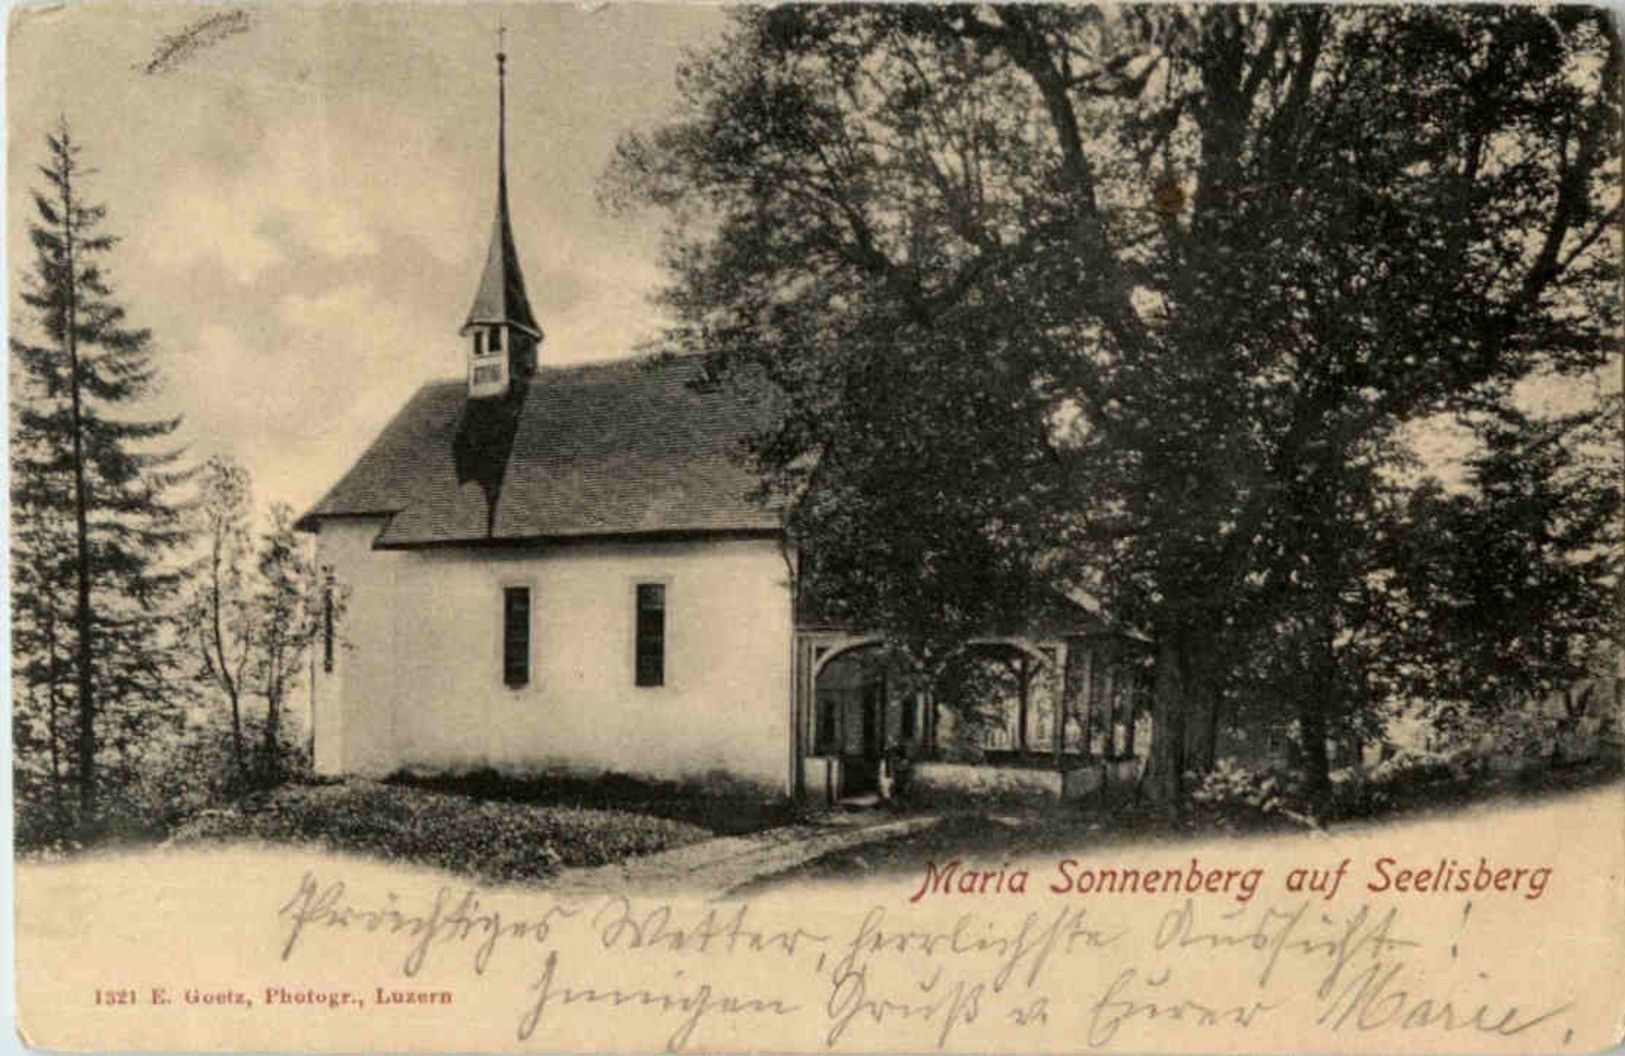 Maria Sonnenberg auf Seelisberg
Prächtiges Wetter, herrlichste Aussicht!
Innigen Gruß v. Eurer Marie.
1321 E. Goetz, Photogr., Luzern